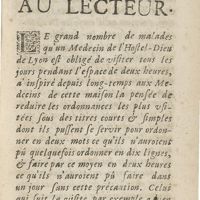 AU LECTEUR.
LE grand nombre de malades
qu'un Medecin de l'Hostel-Dieu
de Lyon est obligé de visiter tous les
jours pendant l'espace de deux heures,
a inspiré depuis long-temps aux Me-
decins de cette maison la pensée de
reduire les ordonnances les plus usi-
tées sous des titres courts & simples
dont ils pussent se servir pour ordon-
ner en deux mots ce qu'ils n'auroient
pû quelquefois ordonner en dix lignes,
& faire par ce moyen en deux heures
ce qu'ils n'auroient pû faire dans
un jour sans cette précaution. Celui
qui fait la visite par exemple